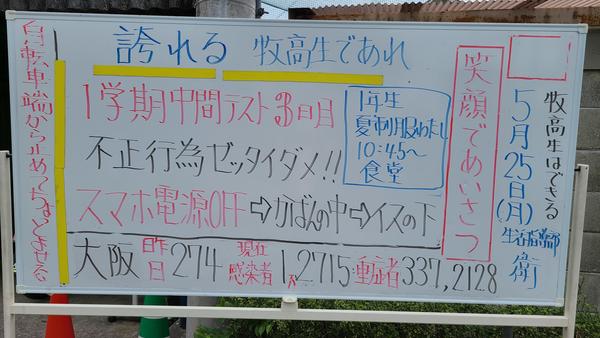 牧高生はできる
5月25日(月)
生活指導部 衛
笑顔であいさつ
誇れる 牧高生であれ
1学期中間テスト3日目
不正行為ゼッタイダメ!!
スマホ電源OFF⇨かばんの中⇨イスの下
1年生
夏制服わたし
10:45~
食堂
大阪 昨日274 現在感染者 1,2715
337,2128
自転車端から止めて